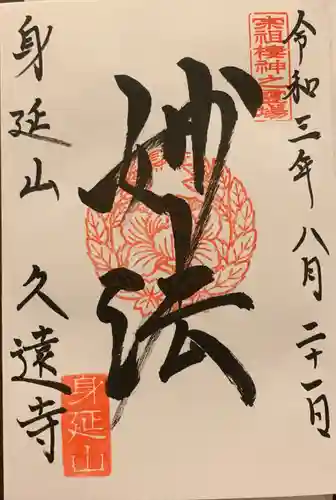 令和三年八月二十一日
宗祖棲神之霊場
妙法
身延山久遠寺
身延山